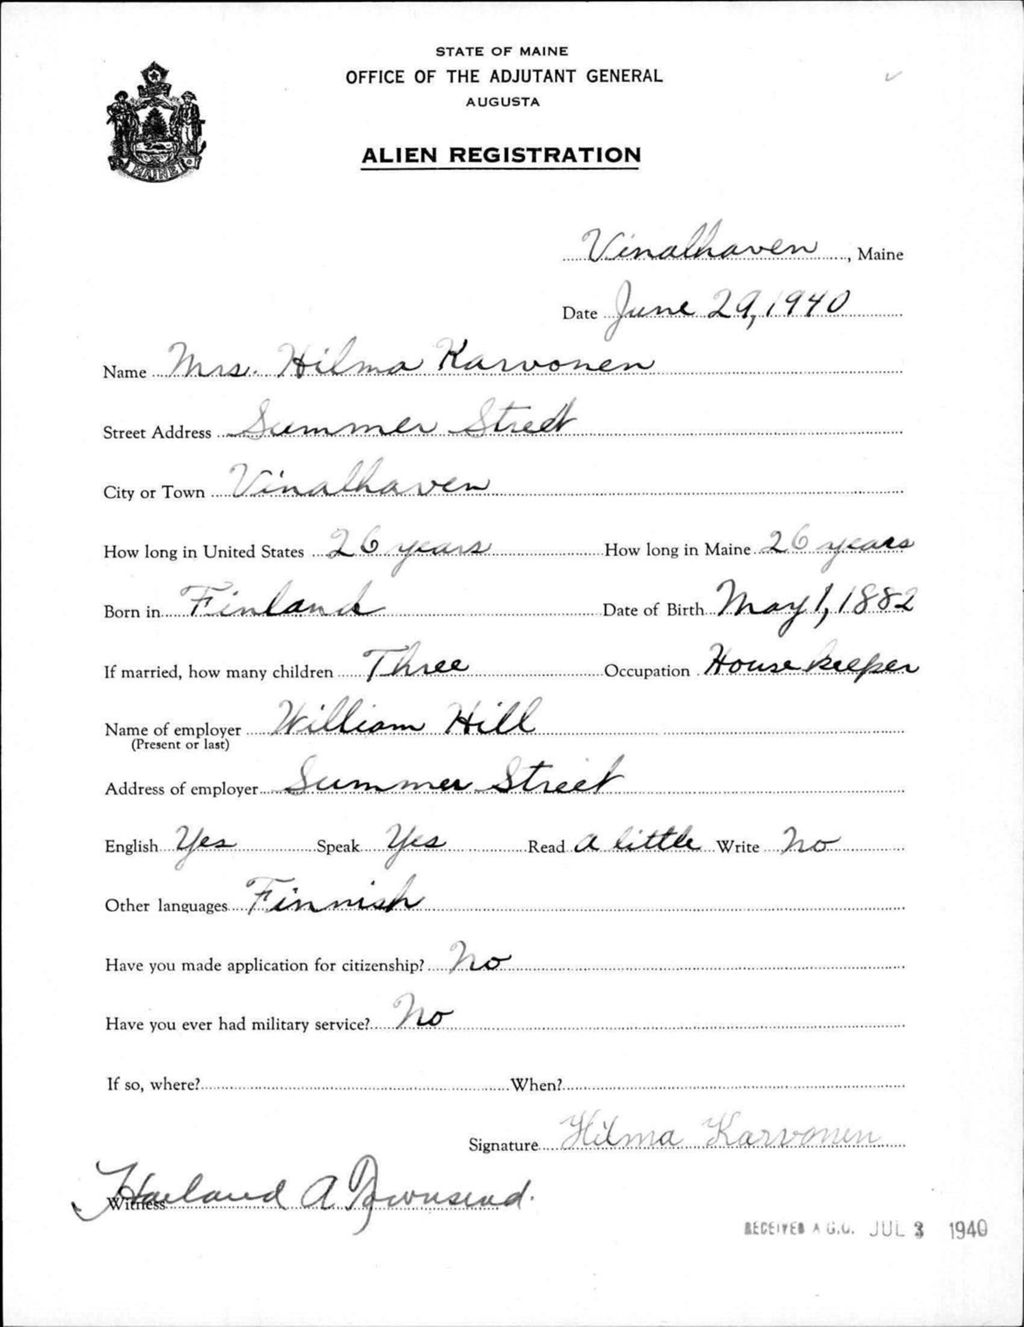 STATE OF MAINE
OFFICE OF THE ADJUTANT GENERAL
AUGUSTA
ALIEN REGISTRATION
MAINE
Vinalhaven, Maine
Date June 29, 1940
Name Mrs. Hilma Karvonen
Street Address Summer Street
City or Town Vinalhaven
How long in United States 26 years How long in Maine 26 years
Born in Finland Date of Birth May 1, 1882
If married, how many children Three Occupation Housekeeper
Name of employer William Hill
(Present or last)
Address of employer Summer Street
English Yes Speak Yes Read A little Write No
Other languages Finnish
Have you made application for citizenship? No
Have you ever had military service? No
If so, where? When?
Signature Hilma Karvonen
Witness Harland A Townsend.
RECEIVED A.G.O. JUL 3 1940